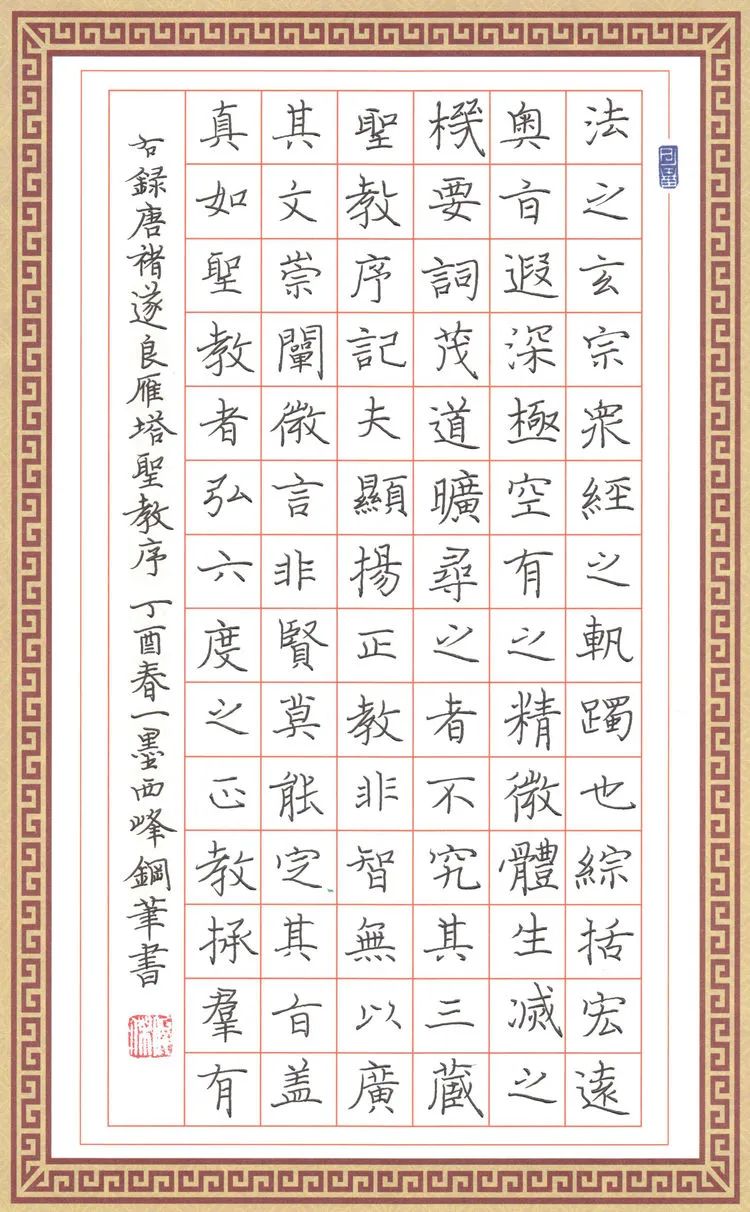 法之玄宗衆經之軌躅也綜括宏遠
奧旨遐深極空有之精微體生滅之
機要詞茂道曠尋之者不究其三藏
聖教序記夫顯揚正教非智無以廣
其文崇闡微言非賢莫能定其旨盖
真如聖教者弘六度之正教拯羣有
右録唐褚遂良雁塔聖教序 丁酉春一墨西峰鋼筆書